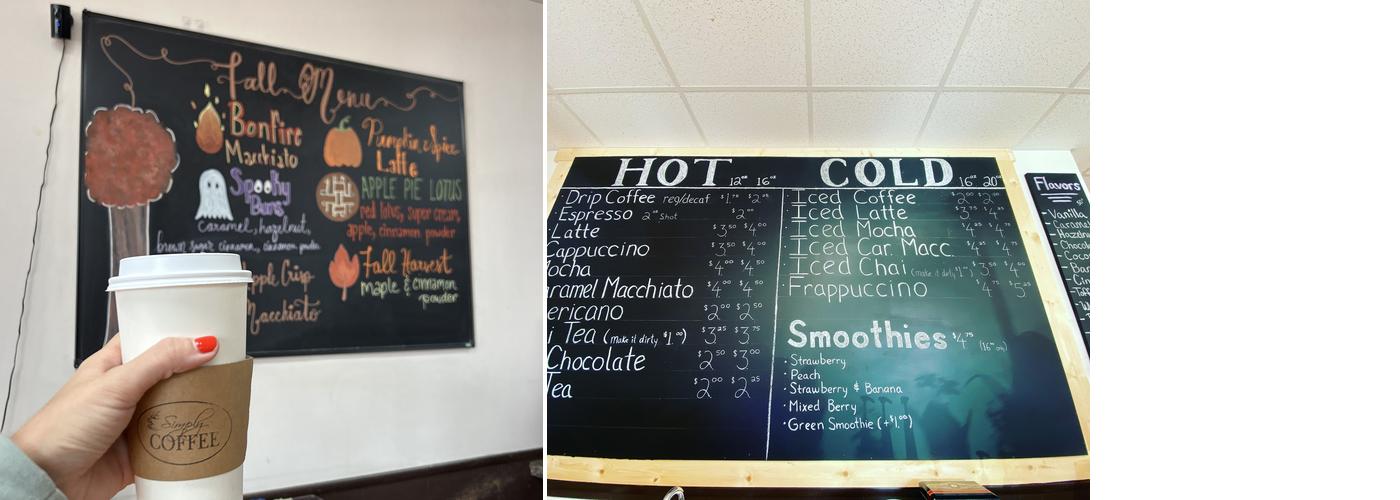 Fall Menu
Bonfire
Macchiato
Spooky
Buns
Caramel, hazelnut,
brown sugar cinnamon, cinnamon powder
Apple Crisp
Macchiato
Pumpkin Spice
Latte
APPLE PIE LOTUS
red lotus, super cream,
apple, cinnamon powder
Fall Harvest
Maple & cinnamon
powder
Simply
COFFEE
HOT 12oz 16oz
Drip Coffee reg/decaf $1.75
Espresso 2oz Shot $2.00
Latte $3.50 $4.00
Cappuccino $3.50 $4.00
ocha $4.00 $4.50
aramel Macchiato $4.00 $4.50
ericano $2.00 $2.50
i Tea (make it dirty $1.00) $3.25 $3.75
Chocolate $2.50 $3.00
Tea $2.00 $2.25
COLD 16oz 20oz
Iced Coffee $2.00 $2.50
Iced Latte $3.75 $4.25
Iced Mocha $4.25 $4.75
Iced Car. Macc. $4.25 $4.75
Iced Chai (make it dirty $1.00) $3.50 $4.00
Frappuccino $4.75 $5.25
Smoothies $4.75 (16oz only)
· Strawberry
· Peach
· Strawberry & Banana
· Mixed Berry
· Green Smoothie (+$1.00)
Flavors
- Vanilla
- Carame
- Hazeln
- Chocol
- Coco
- Ban
- Cin
- Toff